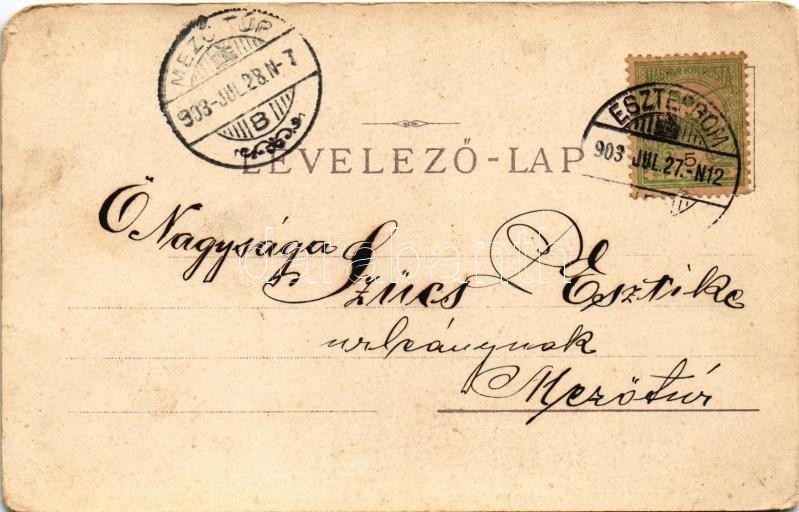 MEZŐ-TÚR
903-JUL.28.N-7
B
MAGYAR KIR. POSTA
ESZTERGOM
903 JUL.27.-N12
5
LEVELEZŐ-LAP
Ő Nagysága
Szücs Esztike
urleánynak
Mezőtúr
darabanth